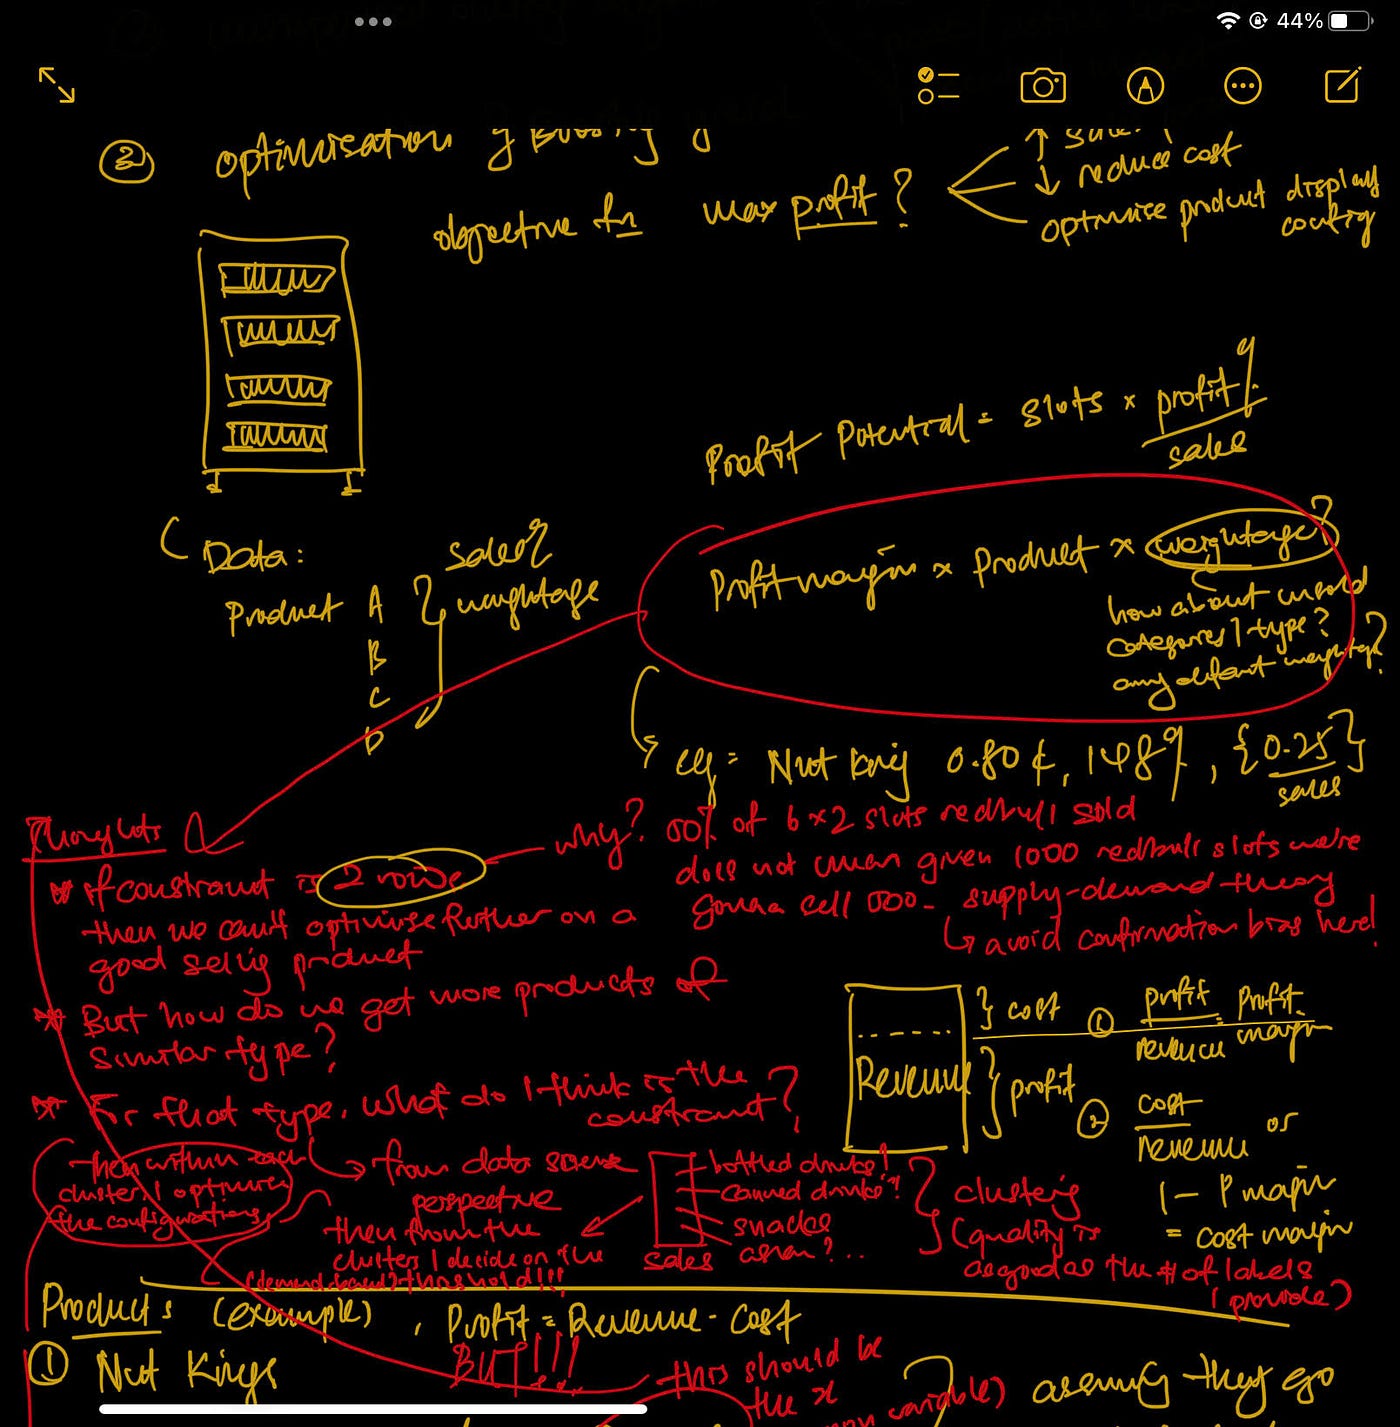 44%
② optimisation
↑ sales
↓ reduce cost
optimise product display config
objective fn max profit?
Profit Potential = slots × profit% / sales
Data:
Product A
B
C
D
sales%
weightage
Profit margin × product × weightage?
how about unsold
categories / type?
any default weightage?
eg = Nut King 0.80¢, 148%, {0.25} / sales
Thoughts
if constraint is 2 rows
then we can't optimise further on a
good selling product
why? 100% of 6×2 slots redbull sold
does not mean given 1000 redbull slots we're
gonna sell 1000 - supply-demand theory
↳ avoid confirmation bias here!
But how do we get more products of
similar type?
For that type, what do I think is the
constraint?
Revenue
} cost
} profit
① profit / revenue = profit margin
② cost / revenue or
1 - P margin
= cost margin
then within each
cluster, I optimise
the configurations
from data science
perspective
then from the
clusters I decide on the
(demand based) threshold!!!
sales
bottled drinks!
canned drinks?!
snacks
asian?...
clustering
(quality is
as good as the # of labels
I provide)
Products (example), Profit = Revenue - Cost
① Nut Kings
BUT!!!
this should be
the x
variable)
assuming they go